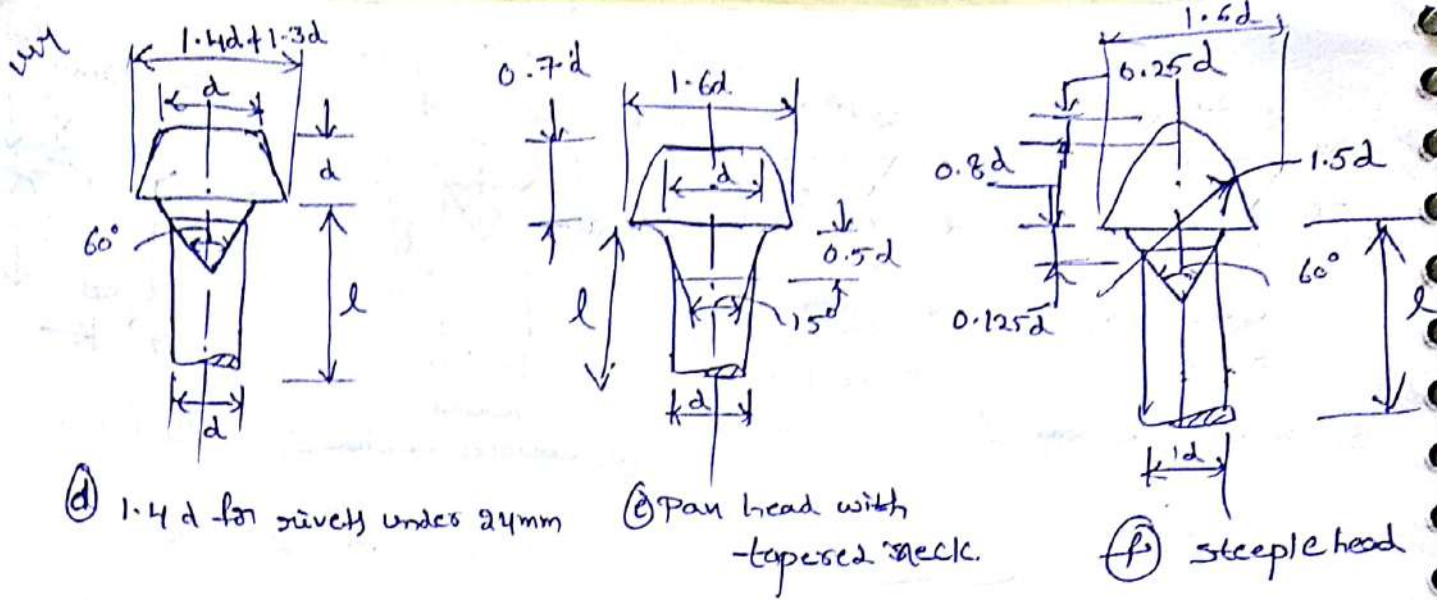 1.4d & 1.3d
d
d
60°
l
d
ⓓ 1.4 d for rivets under 24mm
0.7d
1.6d
d
0.5d
l
15°
d
ⓔ Pan head with
tapered neck.
1.6d
0.25d
0.8d
1.5d
60°
0.125d
l
1d
ⓕ steeple head